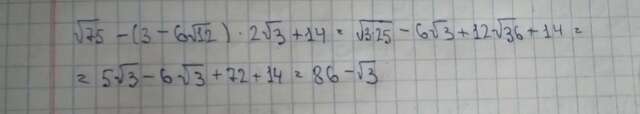 √75 - (3 - 6√12) · 2√3 + 14 = √3·25 - 6√3 + 12√36 + 14 =
= 5√3 - 6√3 + 72 + 14 = 86 - √3